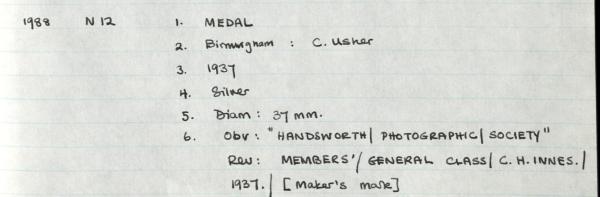 1988 N 12 1. MEDAL
2. Birmingham : C. Usher
3. 1937
4. Silver
5. Diam : 37 mm.
6. Obv : "HANDSWORTH/ PHOTOGRAPHIC/ SOCIETY"
Rev: MEMBERS'/ GENERAL CLASS/ C.H. INNES./
1937./ [Maker's mark]